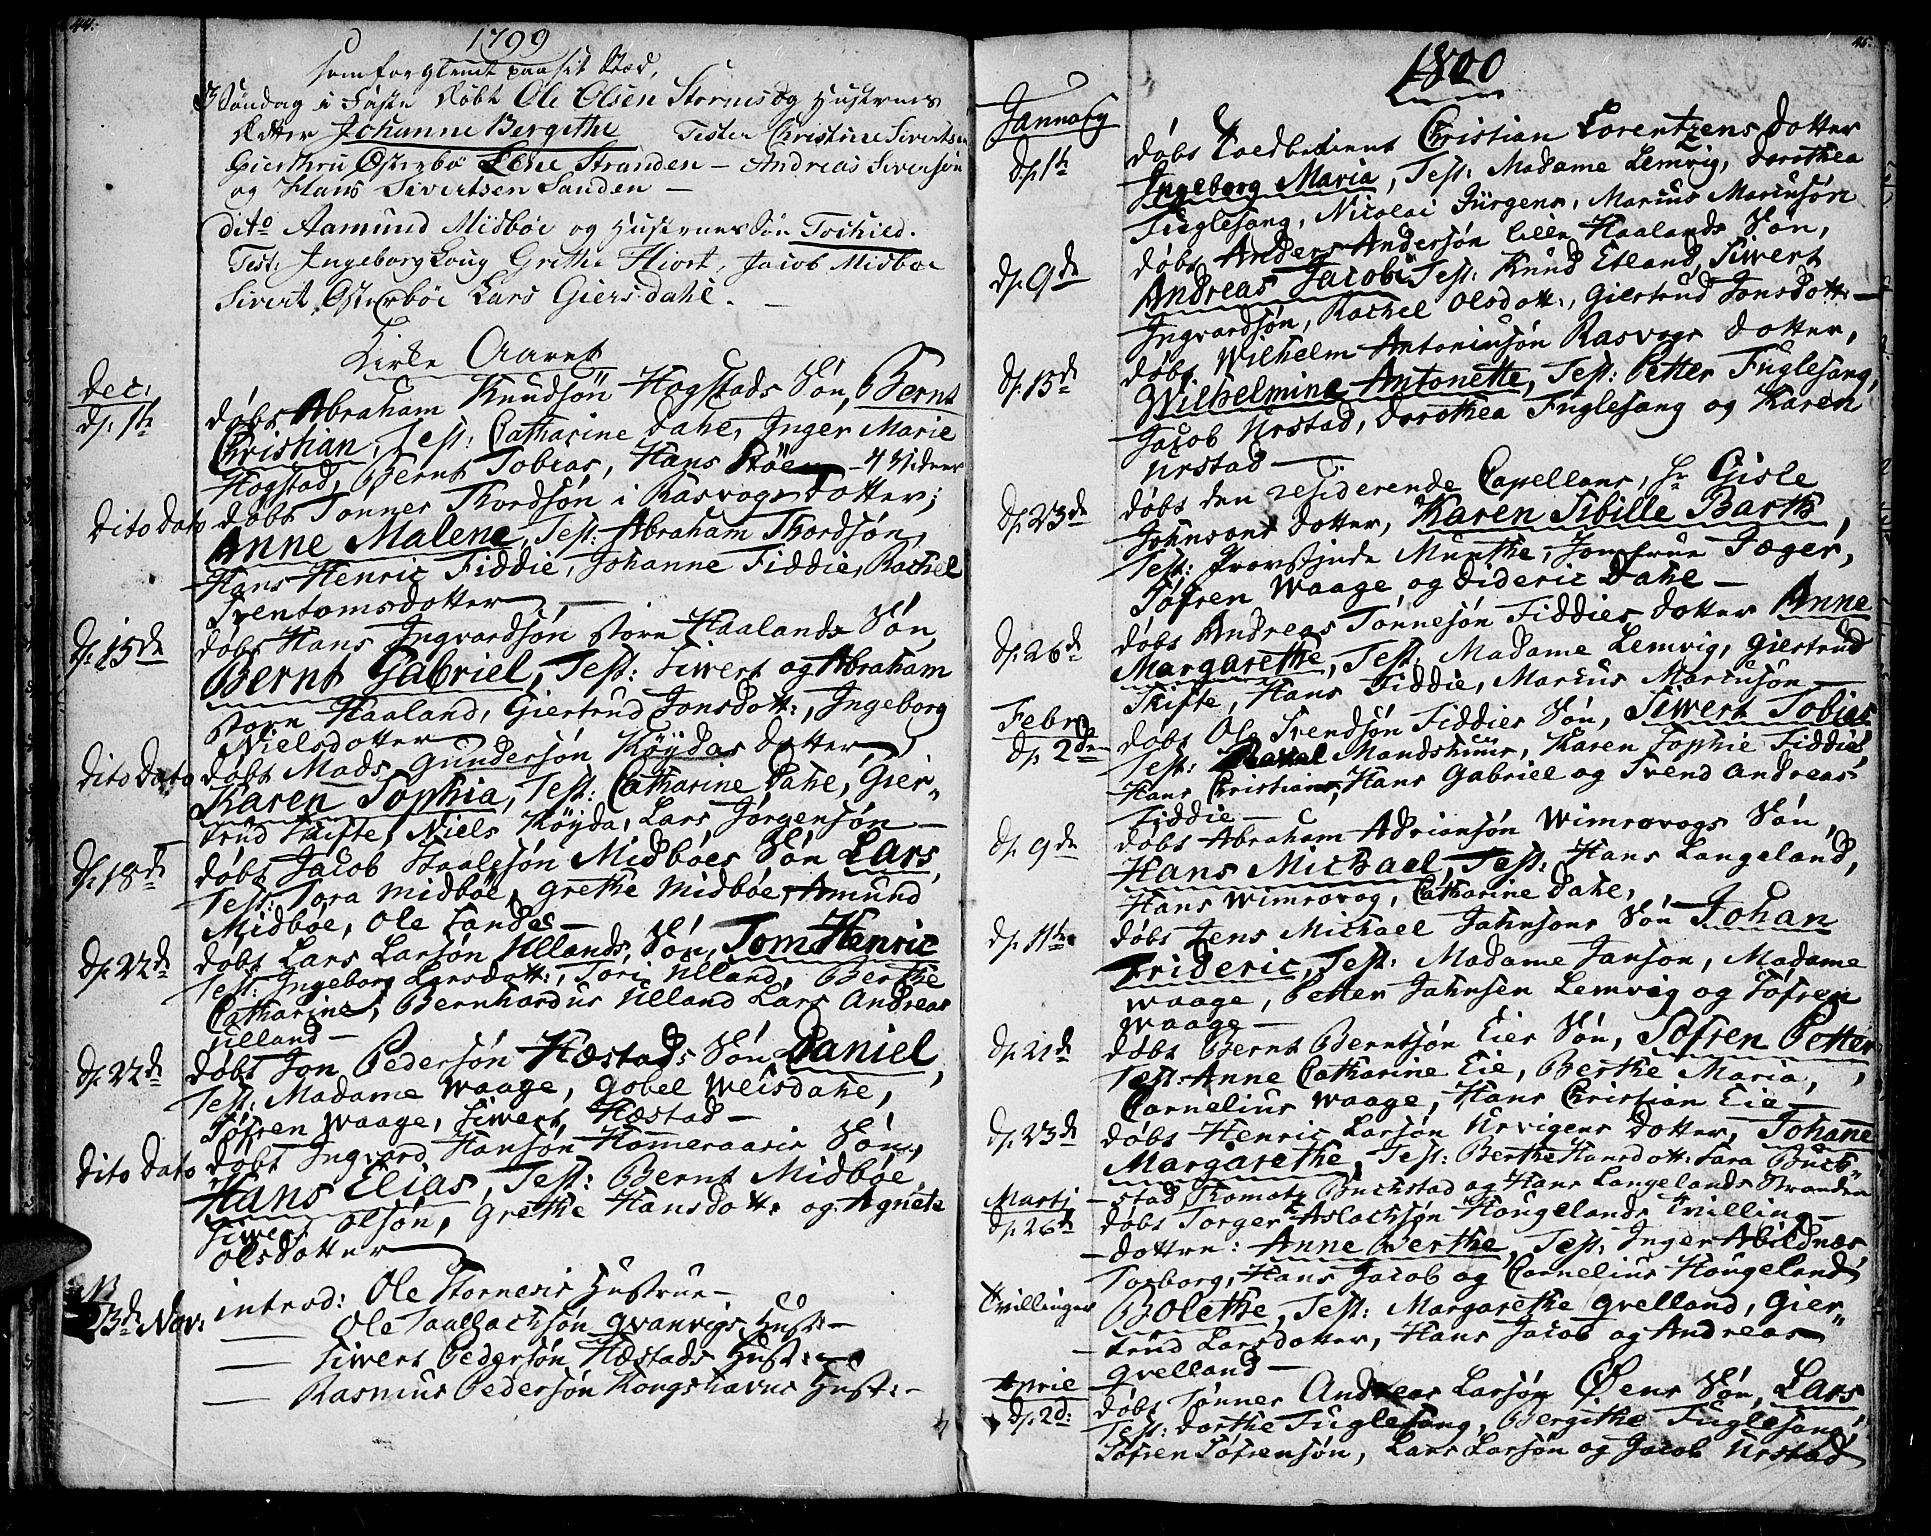 44.
1799
som forglemt paa sit Sted,
3 Söndag i Faste döbt Ole Olsen Stornes og Hustrues
datter Johanne Bergithe Tester Christine Sivertsen
Gierthru Österbö Lene Stranden – Andreas Sivertsön
og Hans Sivertsen Sanden –
dito Aamund Midböe og Hustrues Sön Tochild.
Test: Ingeborg Loug Grethe Hiort, Jacob Midböe
Sivert Österböe Lars Giersdahl. –
Kirke Aaret
Dec:
d. 1te döbt Abraham Knudsön Hogstads Sön, Bernt
Christian, Test: Catharine Dahl, Inger Marie
Hogstad, Bernt Tobias, Hans
Dito Dato döbt Tönnes Thordsön i Rasvogs Dotter,
Anne Malene, Test: Abraham Thordsön,
Hans Henric Fiddie, Johanne Fiddie, Rachel
Sventomsdotter
d. 15de döbt Hans Ingvardsön store Haalands Sön,
Bernt Gabriel, Test: Siwert og Abraham
store Haaland, Giertrud Jonsdott:, Ingeborg
Nielsdotter
Dito Dato döbt Mads Gundersön Köydas Dotter,
Karen Sophia, Test: Catharine Dahl, Gier-
trud Skifte, Niels Köyda, Lars Jörgensön –
d. 18de döbt Jacob Staalesön Midböes Sön Lars,
Test: Tora Midböe, Grethe Midböe, Amund
Midböe, Ole Landes –
d. 22de döbt Lars Larsön Ullands Sön, Tom Henric
Test: Ingeborg Larsdott:, Tori Ulland, Berthe
Catharine, Bernhardus Ulland Lars Andreas
Ulland –
d. 22de döbt Jon Pedersön Hæstads Sön Daniel,
Test: Madame Waage, Gobel Weisdahl,
Söfren Waage, Siwert Hæstad –
Dito Dato döbt Ingvard Hansön Homeraasis Sön,
Hans Elias, Test: Bernt Midböe,
Siwert Olsön, Grethe Hansdott: og Agnete
Olsdotter
23de Nov: introd: Ole Stornesis Hustrue –
— Ole Saalsachsön Qvanvigs Hust: –
— Siwert Pedersön Hæstads Hust: –
— Rasmus Pedersön Kongshavns Hust: –
45.
1800
Januar
d. 1te döbt Toedbetient Christian Lorentzens Dotter
Ingeborg Maria, Test: Madame Lemvig, Dorothea
Fuglesang, Nicolai Jürgens, Marcus Marcusön
d. 9de döbt Anders Andersön lille Haalands Sön,
Andreas Jacob, Test: Knud Etland, Siwert
Ingvardsön, Rachel Olsdott:, Giertrud Jonsdott: –
d. 13de döbt Wilhelm Antoniusön Rasvogs Dotter,
Wilhelmine Antonette, Test: Petter Fuglesang,
Jacob Urstad, Dorothea Fuglesang og Karen
Urstad –
d. 23de döbt den residerende Capellans, Hr Gisle
Johnsons Dotter, Karen Sibille Barth,
Test: Provstinde Munthe, Jomfrue Jæger,
Söfren Waage, og Dideric Dahl –
d. 26de döbt Andreas Tönnesön Fiddies Dotter Anne
Margarethe, Test: Madame Lemvig, Giertrud
Skifte, Hans Fiddie, Marcus Marcusön –
Febr:
d. 2den döbt Ole Svendsön Fiddies Sön, Siwert Tobias
Test: Mandshuus, Karen Sophie Fiddie,
Hans Christian, Hans Gabriel og Svend Andreas
Fiddie –
d. 9de döbt Abraham Adriansön Wimrovogs Sön,
Hans Michael, Test: Hans Langeland,
Hans Wimrovog, Catharine Dahl,
d. 11te döbt Jens Michael Jahnsons Sön Johan
Frideric, Test: Madame Janson, Madame
Waage, Petter Jahnsen Lemvig og Söfren
Waage –
d. 21de döbt Bernt Berntsön Eies Sön, Söfren Petter,
Test: Anne Catharine Eie, Berthe Maria,
Cornelius Waage, Hans Christian Eie –
d. 23de döbt Henric Larsön Urvigens Dotter, Johane
Margarethe, Test: Berthe Hansdott: Sara Buch-
stad, Thomas Buchstad og Hans Langelands Stranden
Martj
d. 26de döbt Torger Aslachsön Hougelands Tvilling-
– dottre: Anne Berthe, Test: Inger Abildnæs
Torborg, Hans Jacob og Cornelius Hougeland
Tvillinger Bolethe, Test: Margarethe Qvelland, Gier-
trud Larsdotter, Hans Jacob og Andreas
Qvelland –
Aprie
d. 2d: döbt Tönnes Andreas Larsön Öens Sön, Lars
Test: Dorthe Fuglesang, Bergithe Fuglesang,
Söfren Söfrensön, Lars Larsön og Jacob Urstad